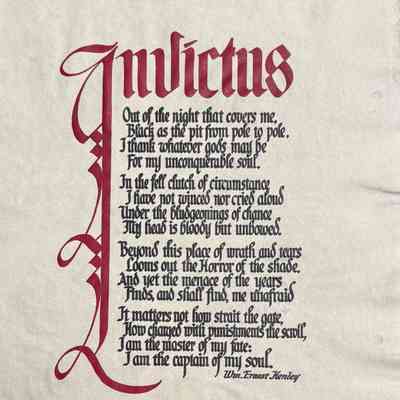 Invictus
Out of the night that covers me,
Black as the pit from pole to pole.
I thank whatever gods may be
For my unconquerable soul.
In the fell clutch of circumstance
I have not winced nor cried aloud
Under the bludgeonings of chance
My head is bloody but unbowed.
Beyond this place of wrath and tears
Looms out the Horror of the shade.
And yet the menace of the years
Finds, and shall find, me unafraid
It matters not how strait the gate,
How charged with punishments the scroll,
I am the master of my fate:
I am the captain of my soul.
Wm. Ernest Henley